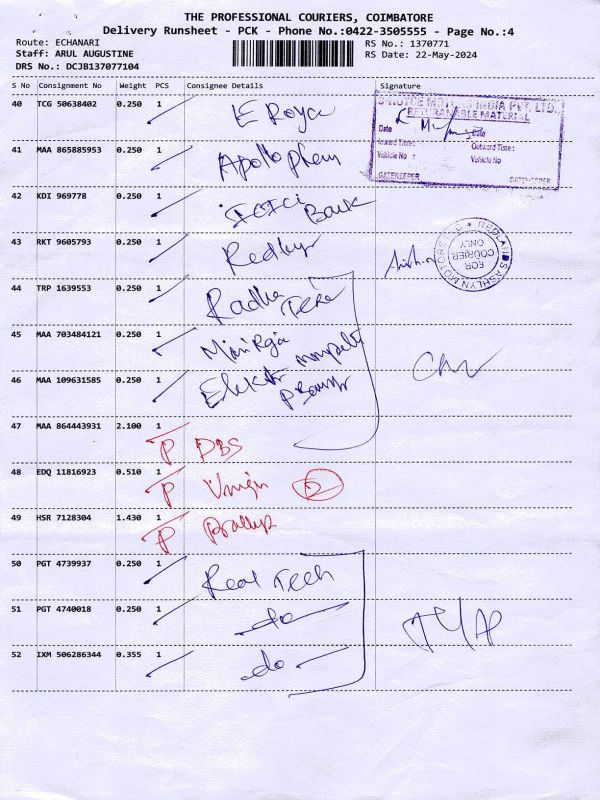 THE PROFESSIONAL COURIERS, COIMBATORE
Delivery Runsheet - PCK - Phone No.:0422-3505555 - Page No.:4
Route: ECHANARI
RS No.: 1370771
Staff: ARUL AUGUSTINE
RS Date: 22-May-2024
DRS No.: DCJB137077104
S No Consignment No Weight PCS Consignee Details Signature
40 TCG 50638402 0.250 1
MOTORS INDIA PVT. LTD.
RETURNABLE MATERIAL
Date Date
Inward Time: Outward Time:
Vehicle No : Vehicle No
GATEKEEPER GATEKEEPER
41 MAA 865885953 0.250 1 Apollo
42 KDI 969778 0.250 1 ICICI Bank
43 RKT 9605793 0.250 1
REDLANDS ASHLYN MOTORS
FOR COURIER ONLY
44 TRP 1639553 0.250 1 Radha
45 MAA 703484121 0.250 1
46 MAA 109631585 0.250 1
47 MAA 864443931 2.100 1 P DBS
48 EDQ 11816923 0.510 1 P 2
49 HSR 7128304 1.430 1 P
50 PGT 4739937 0.250 1 Real Tech
51 PGT 4740018 0.250 1 do
52 IXM 506286344 0.355 1 do